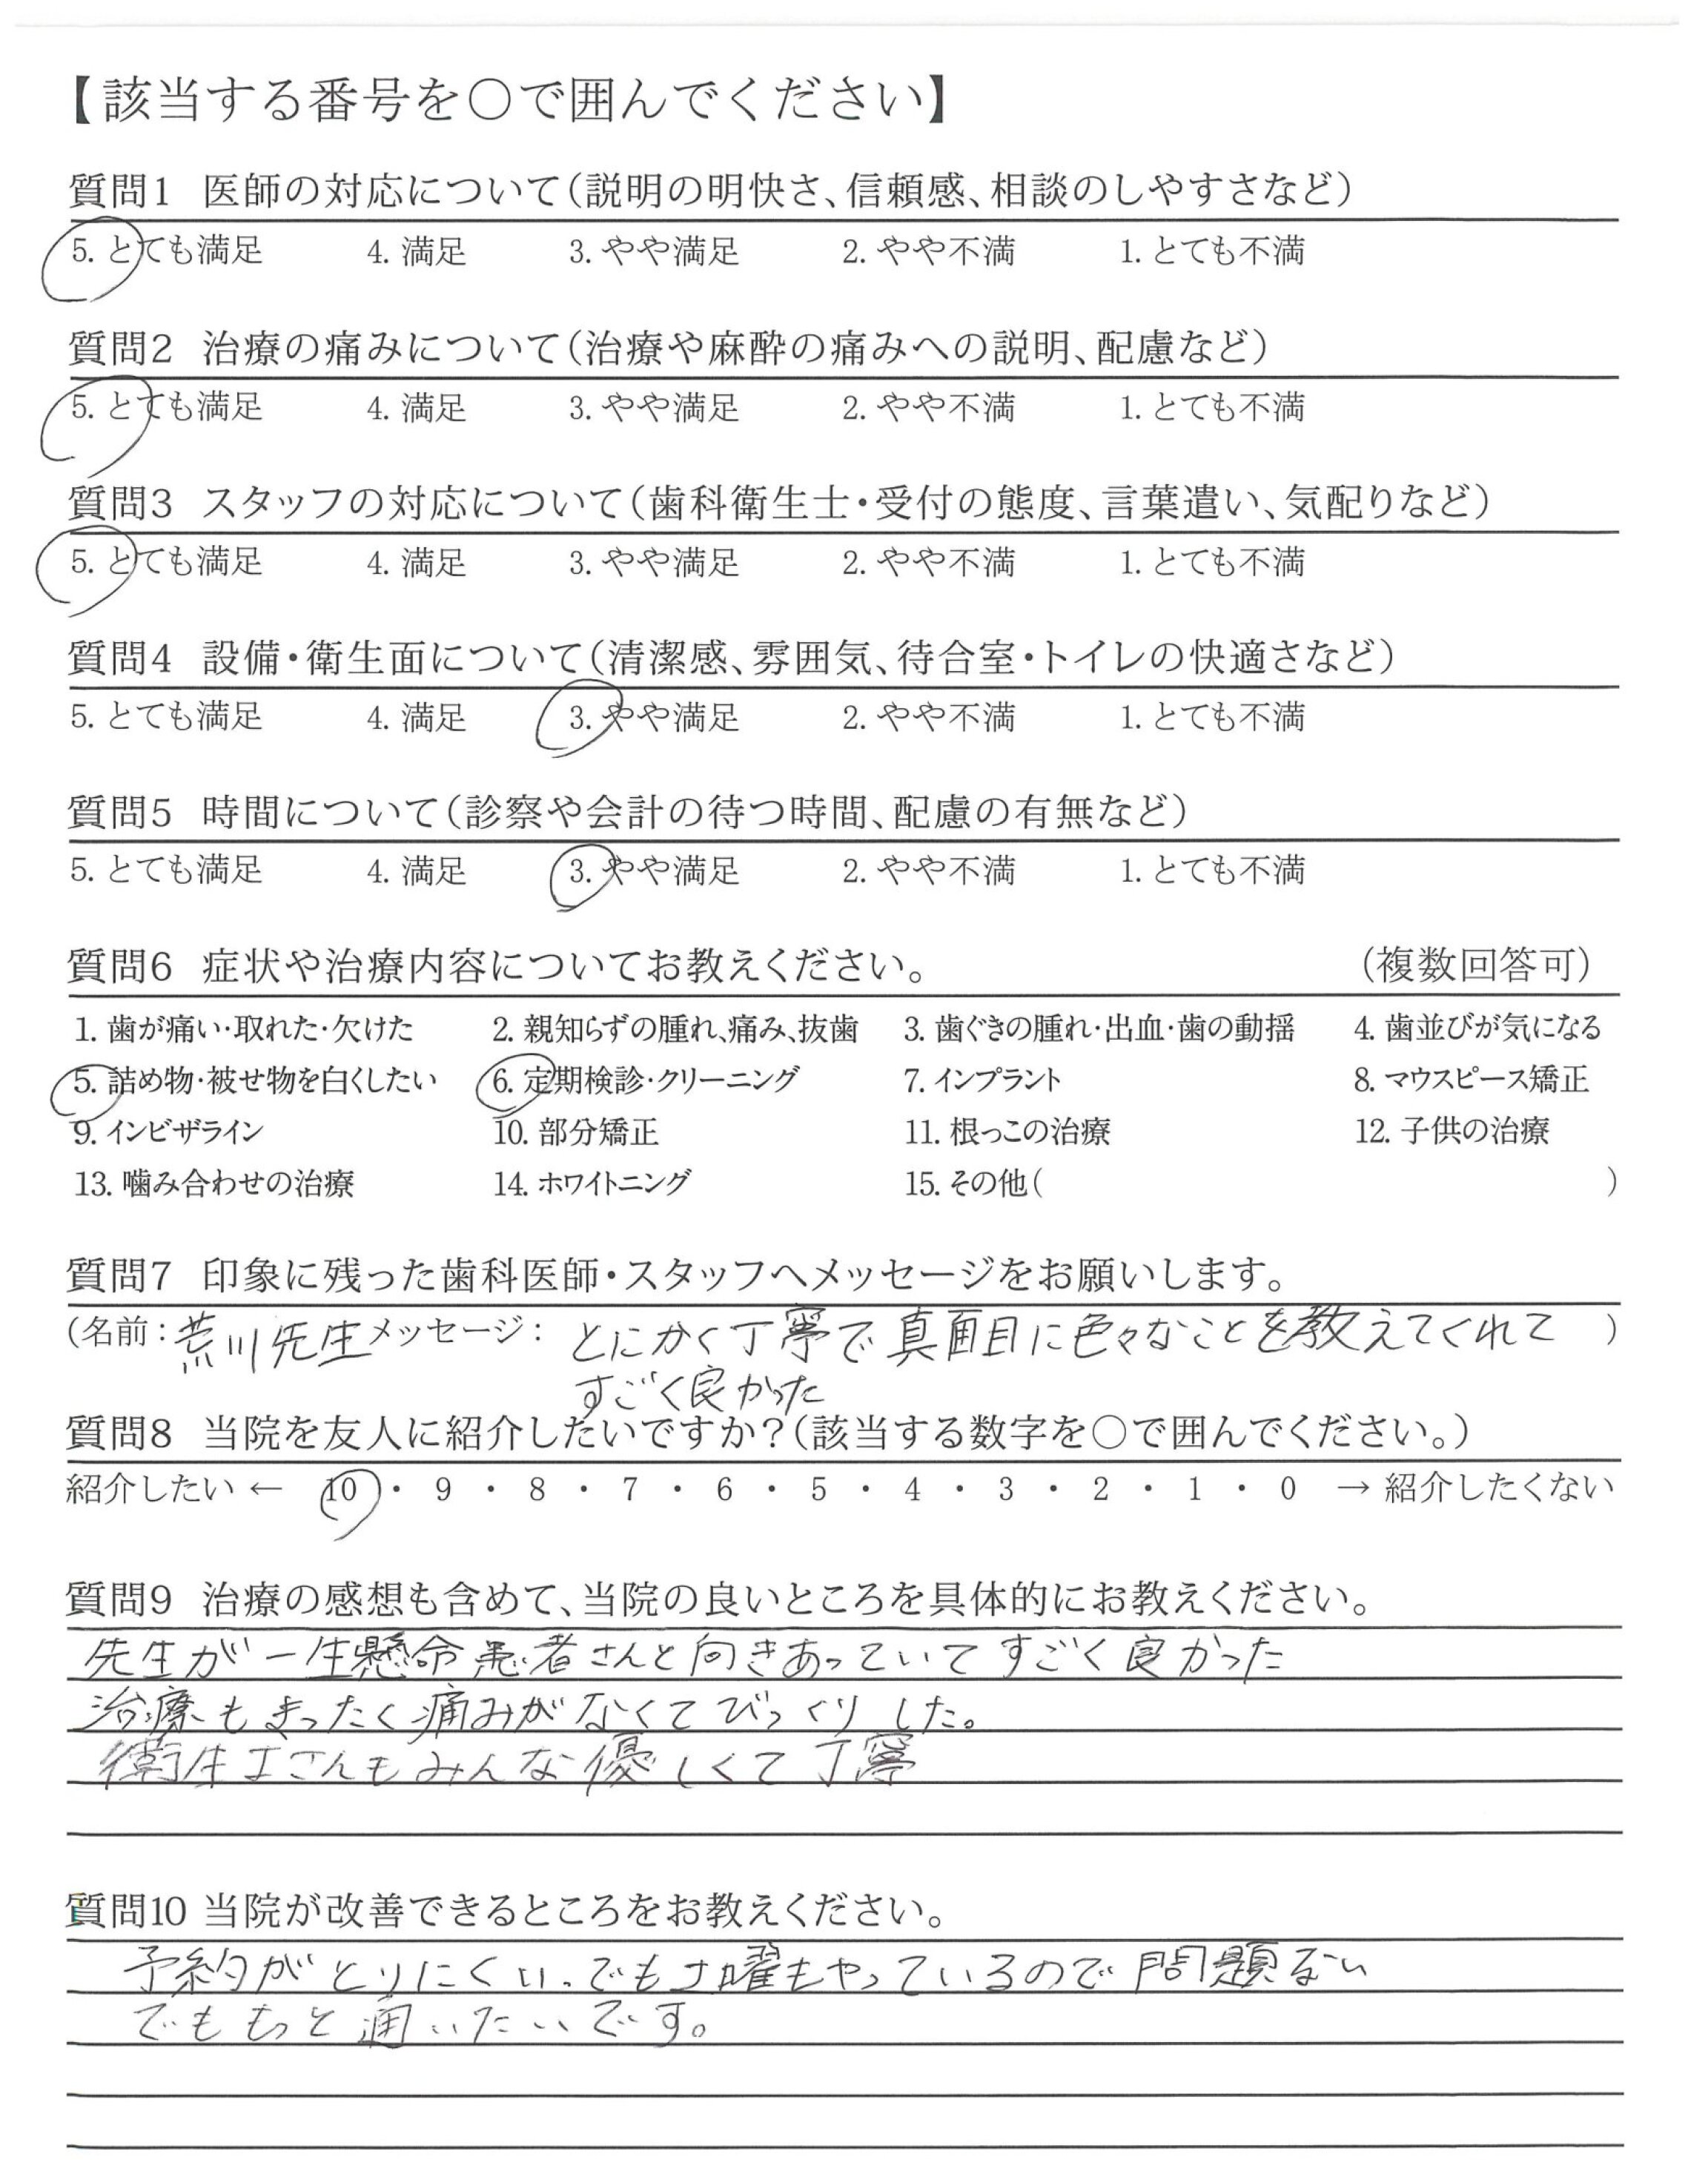 【該当する番号を○で囲んでください】
質問1 医師の対応について(説明の明快さ、信頼感、相談のしやすさなど)
5. とても満足 4. 満足 3. やや満足 2. やや不満 1. とても不満
質問2 治療の痛みについて(治療や麻酔の痛みへの説明、配慮など)
5. とても満足 4. 満足 3. やや満足 2. やや不満 1. とても不満
質問3 スタッフの対応について(歯科衛生士・受付の態度、言葉遣い、気配りなど)
5. とても満足 4. 満足 3. やや満足 2. やや不満 1. とても不満
質問4 設備・衛生面について(清潔感、雰囲気、待合室・トイレの快適さなど)
5. とても満足 4. 満足 3. やや満足 2. やや不満 1. とても不満
質問5 時間について(診察や会計の待つ時間、配慮の有無など)
5. とても満足 4. 満足 3. やや満足 2. やや不満 1. とても不満
質問6 症状や治療内容についてお教えください。 (複数回答可)
1. 歯が痛い・取れた・欠けた 2. 親知らずの腫れ、痛み、抜歯 3. 歯ぐきの腫れ・出血・歯の動揺 4. 歯並びが気になる
5. 詰め物・被せ物を白くしたい 6. 定期検診・クリーニング 7. インプラント 8. マウスピース矯正
9. インビザライン 10. 部分矯正 11. 根っこの治療 12. 子供の治療
13. 噛み合わせの治療 14. ホワイトニング 15. その他( )
質問7 印象に残った歯科医師・スタッフへメッセージをお願いします。
(名前：荒川先生 メッセージ： とにかく丁寧で真面目に色々なことを教えてくれて )
すごく良かった
質問8 当院を友人に紹介したいですか？(該当する数字を○で囲んでください。)
紹介したい ← 10 ・ 9 ・ 8 ・ 7 ・ 6 ・ 5 ・ 4 ・ 3 ・ 2 ・ 1 ・ 0 → 紹介したくない
質問9 治療の感想も含めて、当院の良いところを具体的にお教えください。
先生が一生懸命患者さんと向きあっていてすごく良かった
治療もまったく痛みがなくてびっくりした。
衛生士さんもみんな優しくて丁寧
質問10 当院が改善できるところをお教えください。
予約がとりにくい。でも土曜もやっているので問題ない
でももっと通いたいです。